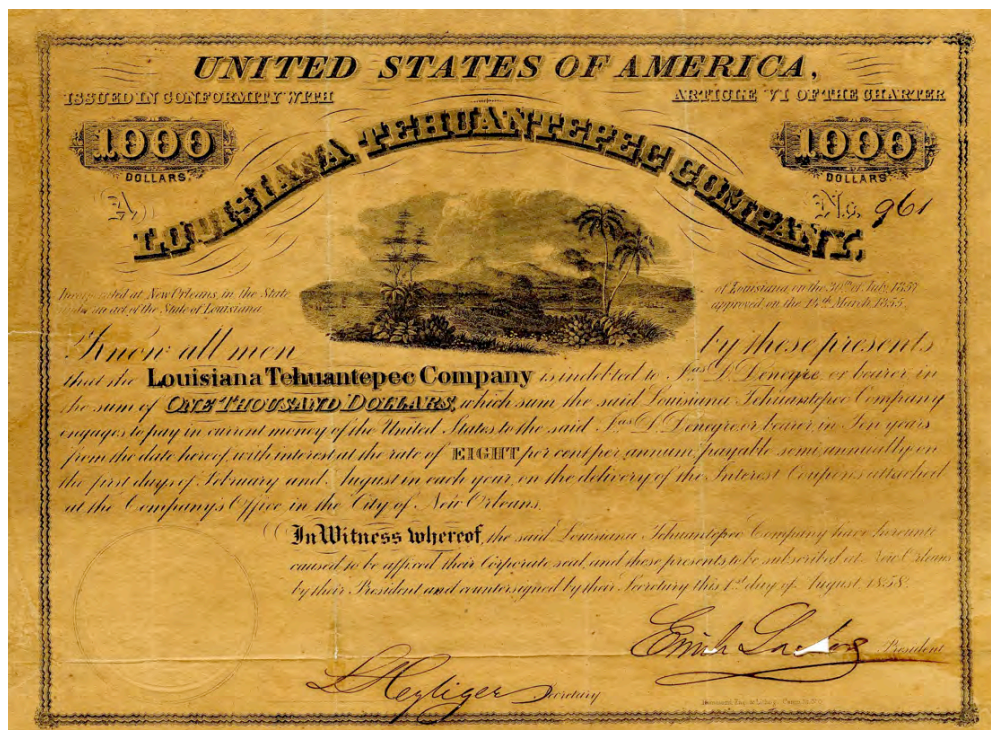 UNITED STATES OF AMERICA,
ISSUED IN CONFORMITY WITH ARTICLE VI OF THE CHARTER
1000 DOLLARS 1000 DOLLARS
LOUISIANA TEHUANTEPEC COMPANY,
A No. 961
Incorporated at New Orleans, in the State of Louisiana, on the 30th of July, 1857
an act of the State of Louisiana approved on the 14th March, 1855.
Know all men by these presents
that the Louisiana Tehuantepec Company is indebted to Jas D. Denegre or bearer in
the sum of ONE THOUSAND DOLLARS, which sum the said Louisiana Tehuantepec Company
engages to pay in current money of the United States to the said Jas D. Denegre or bearer, in Ten years
from the date hereof, with interest at the rate of EIGHT per cent per annum, payable semi annually on
the first days of February and August in each year, on the delivery of the Interest Coupons attached
at the Company's Office in the City of New Orleans.
In Witness whereof, the said Louisiana Tehuantepec Company have hereunto
caused to be affixed their Corporate seal, and these presents to be subscribed at New Orleans
by their President and countersigned by their Secretary this 1st day of August 1858.
Emile President
L Heyliger Secretary